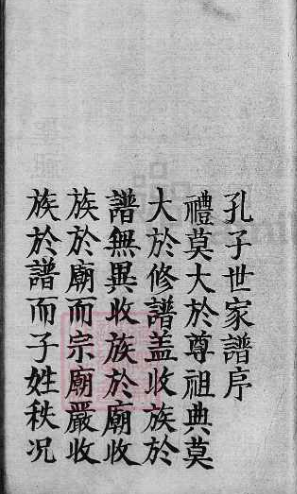 孔子世家譜序
禮莫大於尊祖典莫
大於修譜盖收族於
譜無異收族於廟收
族於廟而宗廟嚴收
族於譜而子姓秩况